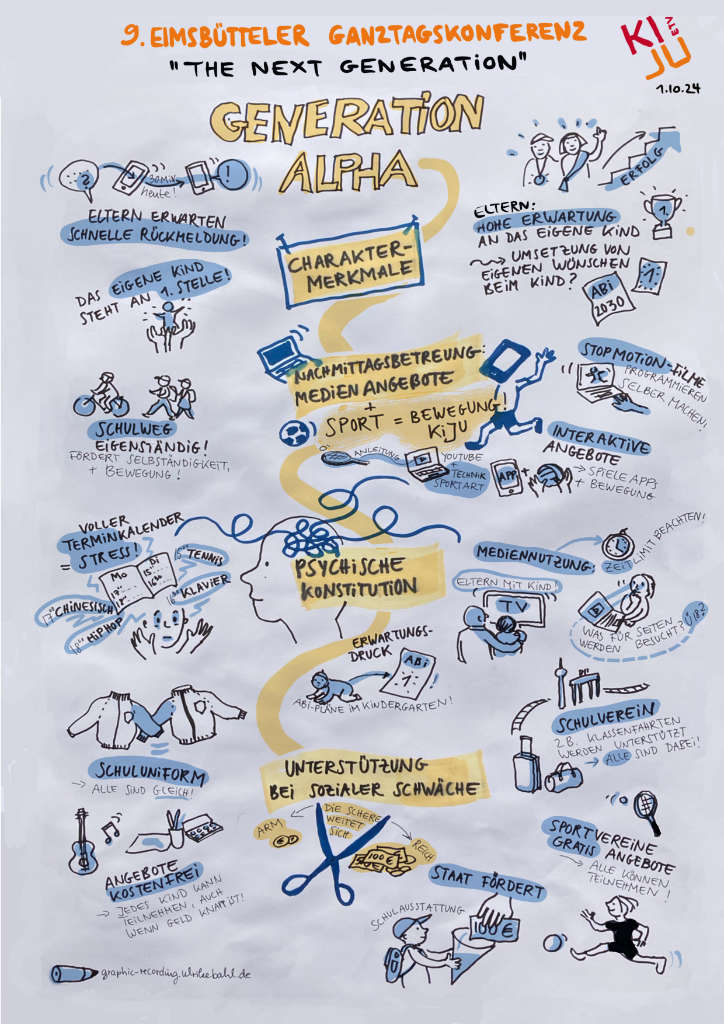 9. EIMSBÜTTELER GANZTAGSKONFERENZ
"THE NEXT GENERATION"
KI
JU
ETV
1.10.24
GENERATION
ALPHA
?
30 Min
heute!
!
ELTERN ERWARTEN
SCHNELLE RÜCKMELDUNG!
DAS EIGENE KIND
STEHT AN 1. STELLE!
SCHULWEG
EIGENSTÄNDIG!
FÖRDERT SELBSTÄNDIGKEIT,
+ BEWEGUNG!
CHARAKTER-
MERKMALE
ERFOLG
ELTERN:
HOHE ERWARTUNG
AN DAS EIGENE KIND
1.
→ UMSETZUNG VON
EIGENEN WÜNSCHEN
BEIM KIND?
ABI
2030
1
NACHMITTAGSBETREUNG:
MEDIEN ANGEBOTE
+
SPORT = BEWEGUNG!
KIJU
ANLEITUNG
YOUTUBE
+
TECHNIK
SPORTART
STOPMOTION-FILME
PROGRAMMIEREN
SELBER MACHEN!
INTERAKTIVE
ANGEBOTE
APP
+
→ SPIELE APPS
+ BEWEGUNG
VOLLER
TERMINKALENDER
= STRESS!
MO
DI
TENNIS
KLAVIER
CHINESISCH
HIPHOP
PSYCHISCHE
KONSTITUTION
ERWARTUNGS-
DRUCK
ABI
1
ABI-PLÄNE IM KINDERGARTEN!
MEDIENNUTZUNG:
ZEITLIMIT BEACHTEN!
ELTERN MIT KIND!
TV
WAS FÜR SEITEN
WERDEN BESUCHT?
SCHULUNIFORM
→ ALLE SIND GLEICH!
ANGEBOTE
KOSTENFREI
→ JEDES KIND KANN
TEILNEHMEN, AUCH
WENN GELD KNAPP IST!
UNTERSTÜTZUNG
BEI SOZIALER SCHWÄCHE
ARM
DIE SCHERE
WEITET
SICH
REICH
100 €
SCHULVEREIN
Z.B. KLASSENFAHRTEN
WERDEN UNTERSTÜTZT
→ ALLE SIND DABEI!
SPORTVEREINE
GRATIS ANGEBOTE
→ ALLE KÖNNEN
TEILNEHMEN!
STAAT FÖRDERT
SCHULAUSSTATTUNG
100 €
graphic-recording.ulrikebahl.de